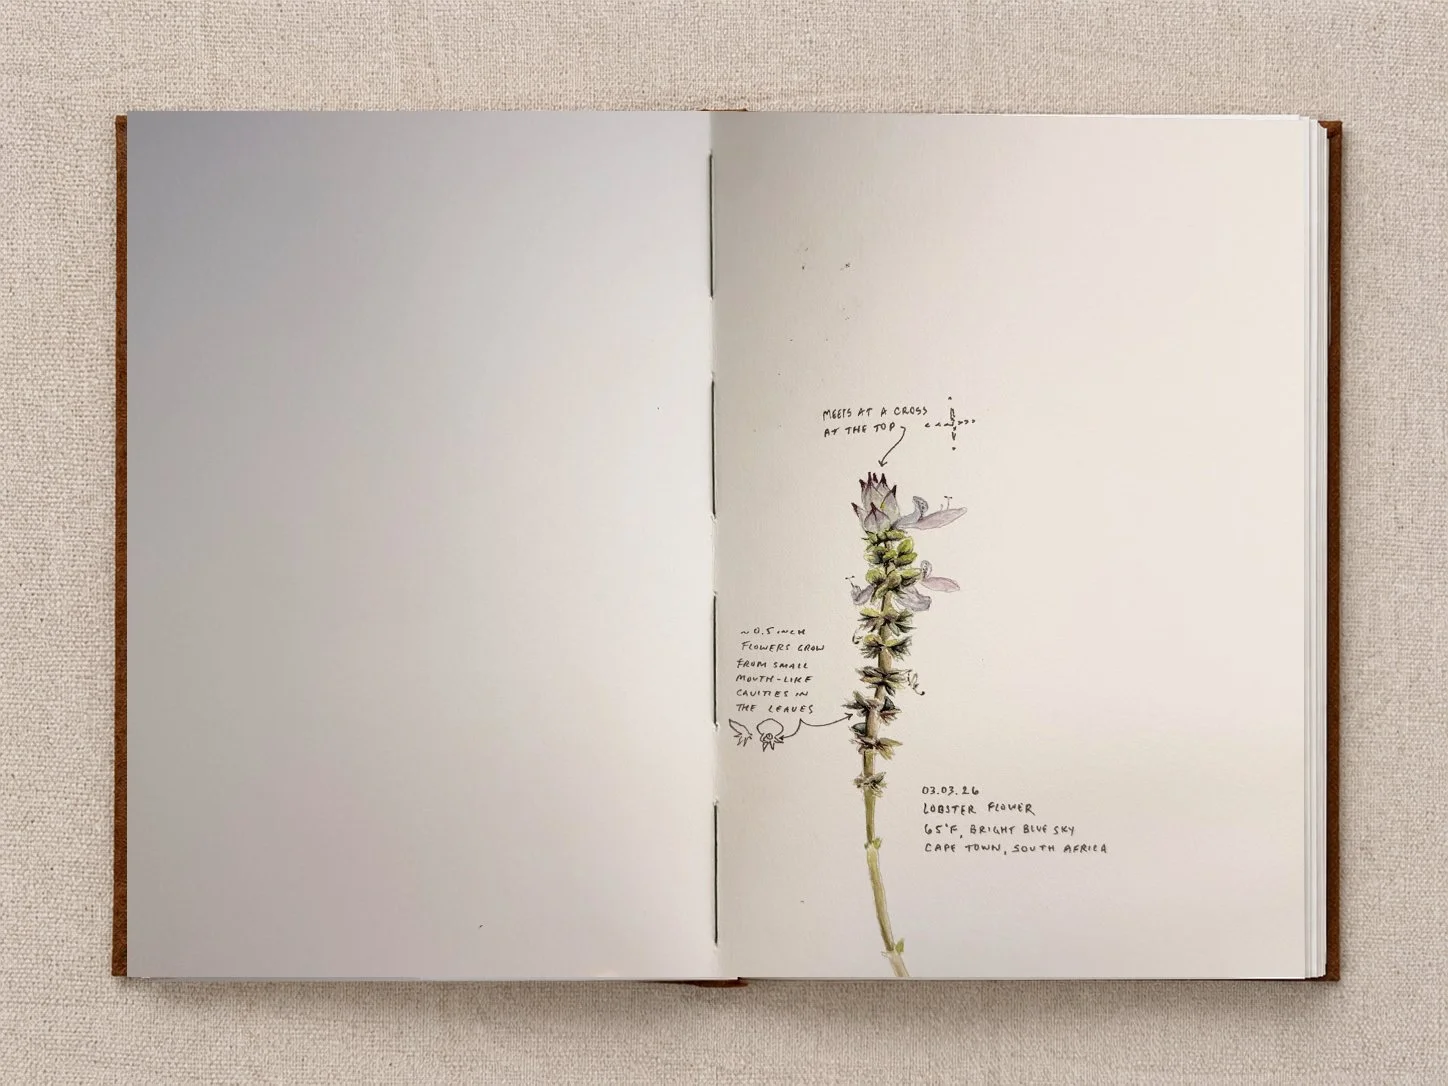 MEETS AT A CROSS
AT THE TOP
~0.5 INCH
FLOWERS GROW
FROM SMALL
MOUTH-LIKE
CAVITIES IN
THE LEAVES
03.03.26
LOBSTER FLOWER
65°F, BRIGHT BLUE SKY
CAPE TOWN, SOUTH AFRICA